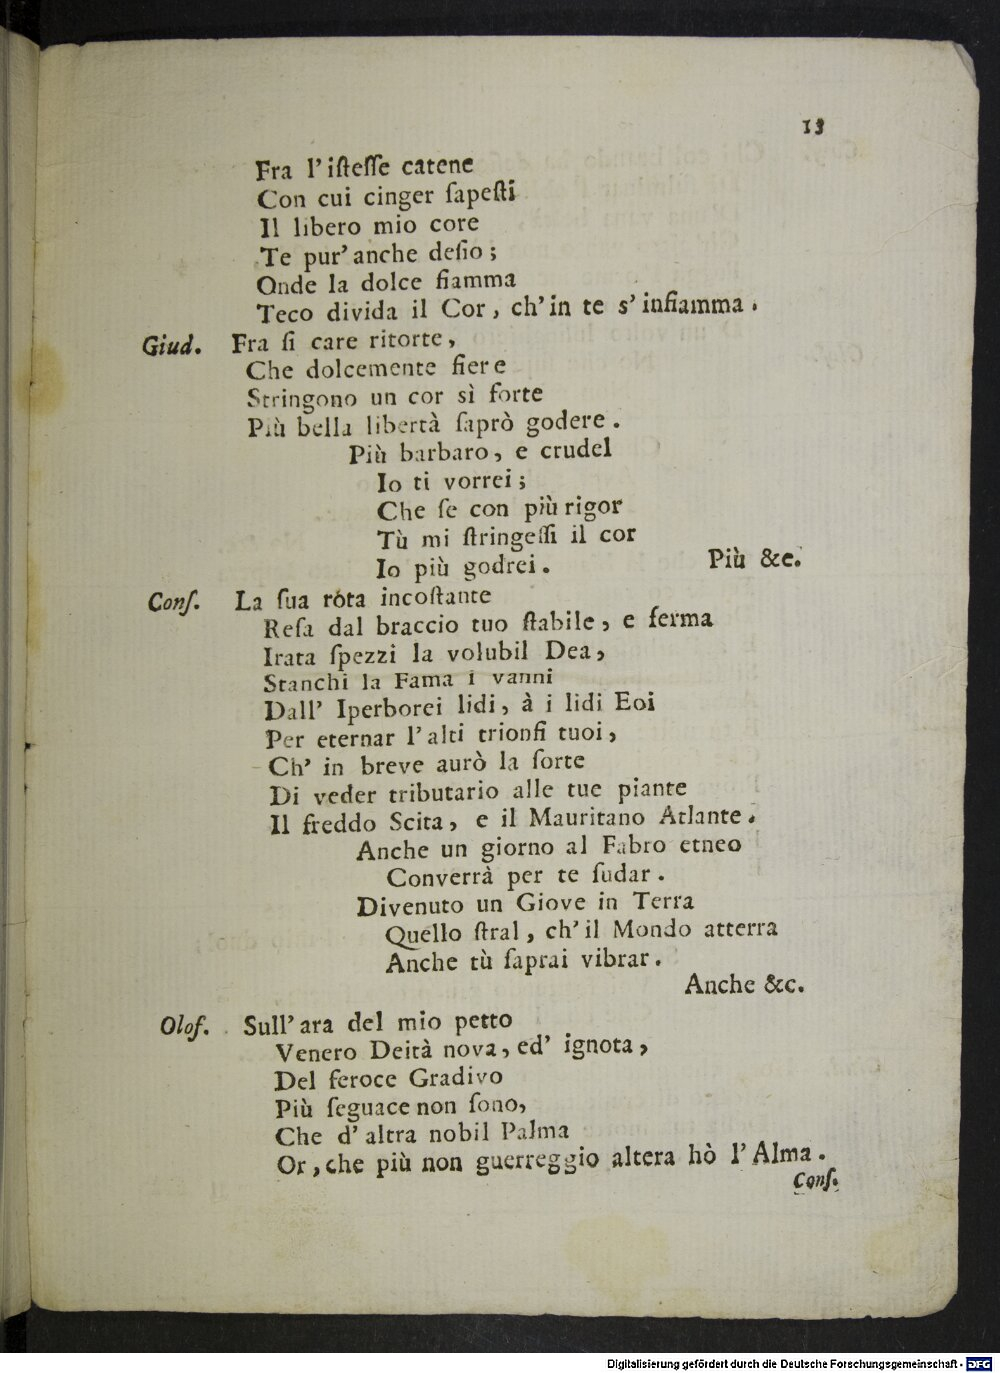 13
Fra l'iſteſſe catene
Con cui cinger ſapeſti
Il libero mio core
Te pur' anche deſio ;
Onde la dolce fiamma
Teco divida il Cor, ch'in te s'infiamma.
Giud. Fra ſi care ritorte,
Che dolcemente fiere
Stringono un cor sì forte
Più bella libertà ſaprò godere.
Più barbaro, e crudel
Io ti vorrei ;
Che ſe con più rigor
Tù mi ſtringeſſi il cor
Io più godrei. Più &c.
Conſ. La ſua rota incoſtante
Reſa dal braccio tuo ſtabile, e ferma
Irata ſpezzi la volubil Dea,
Stanchi la Fama i vanni
Dall' Iperborei lidi, à i lidi Eoi
Per eternar l'alti trionfi tuoi,
Ch' in breve aurò la ſorte
Di veder tributario alle tue piante
Il freddo Scita, e il Mauritano Atlante.
Anche un giorno al Fabro etneo
Converrà per te ſudar.
Divenuto un Giove in Terra
Quello ſtral, ch'il Mondo atterra
Anche tù ſaprai vibrar.
Anche &c.
Olof. Sull'ara del mio petto
Venero Deità nova, ed' ignota,
Del feroce Gradivo
Più ſeguace non ſono,
Che d' altra nobil Palma
Or, che più non guerreggio altera hò l'Alma.
Conſ.
Digitalisierung gefördert durch die Deutsche Forschungsgemeinschaft - DFG